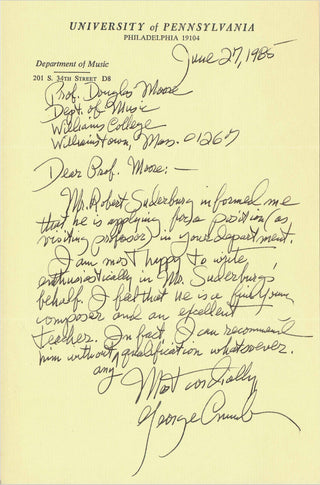 UNIVERSITY of PENNSYLVANIA
PHILADELPHIA 19104
June 27, 1985
Department of Music
201 S. 34TH STREET D8
Prof. Douglas Moore
Dept. of Music
Williams College
Williamstown, Mass. 01267
Dear Prof. Moore: —
Mr. Robert Suderburg informed me
that he is applying for a position (as
visiting professor) in your department.
I am most happy to write
enthusiastically in Mr. Suderburg's
behalf. I feel that he is a fine
composer and an excellent
teacher. In fact, I can recommend
him without qualification whatsoever.
any
Most cordially
George Crumb